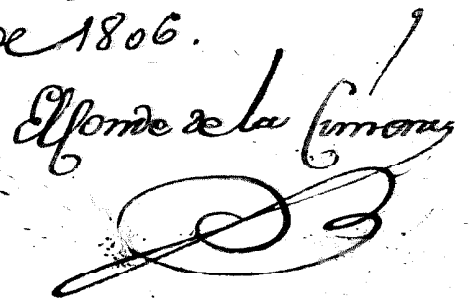 de 1806.
El Conde de la Cimera